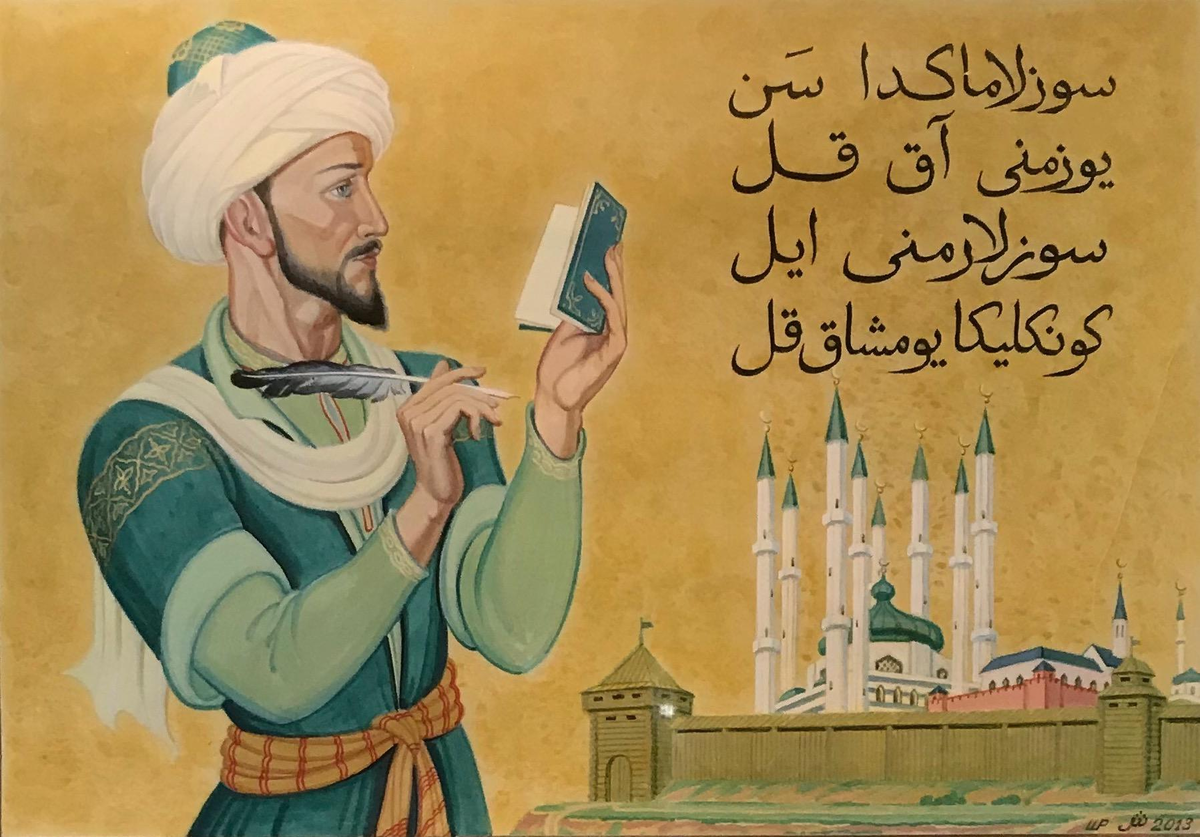 سوزلاماكدا سَن
يوزمنى آق قل
سوزلارمنى ايل
كونكليكا يومشاق قل
شل 2013 ШР